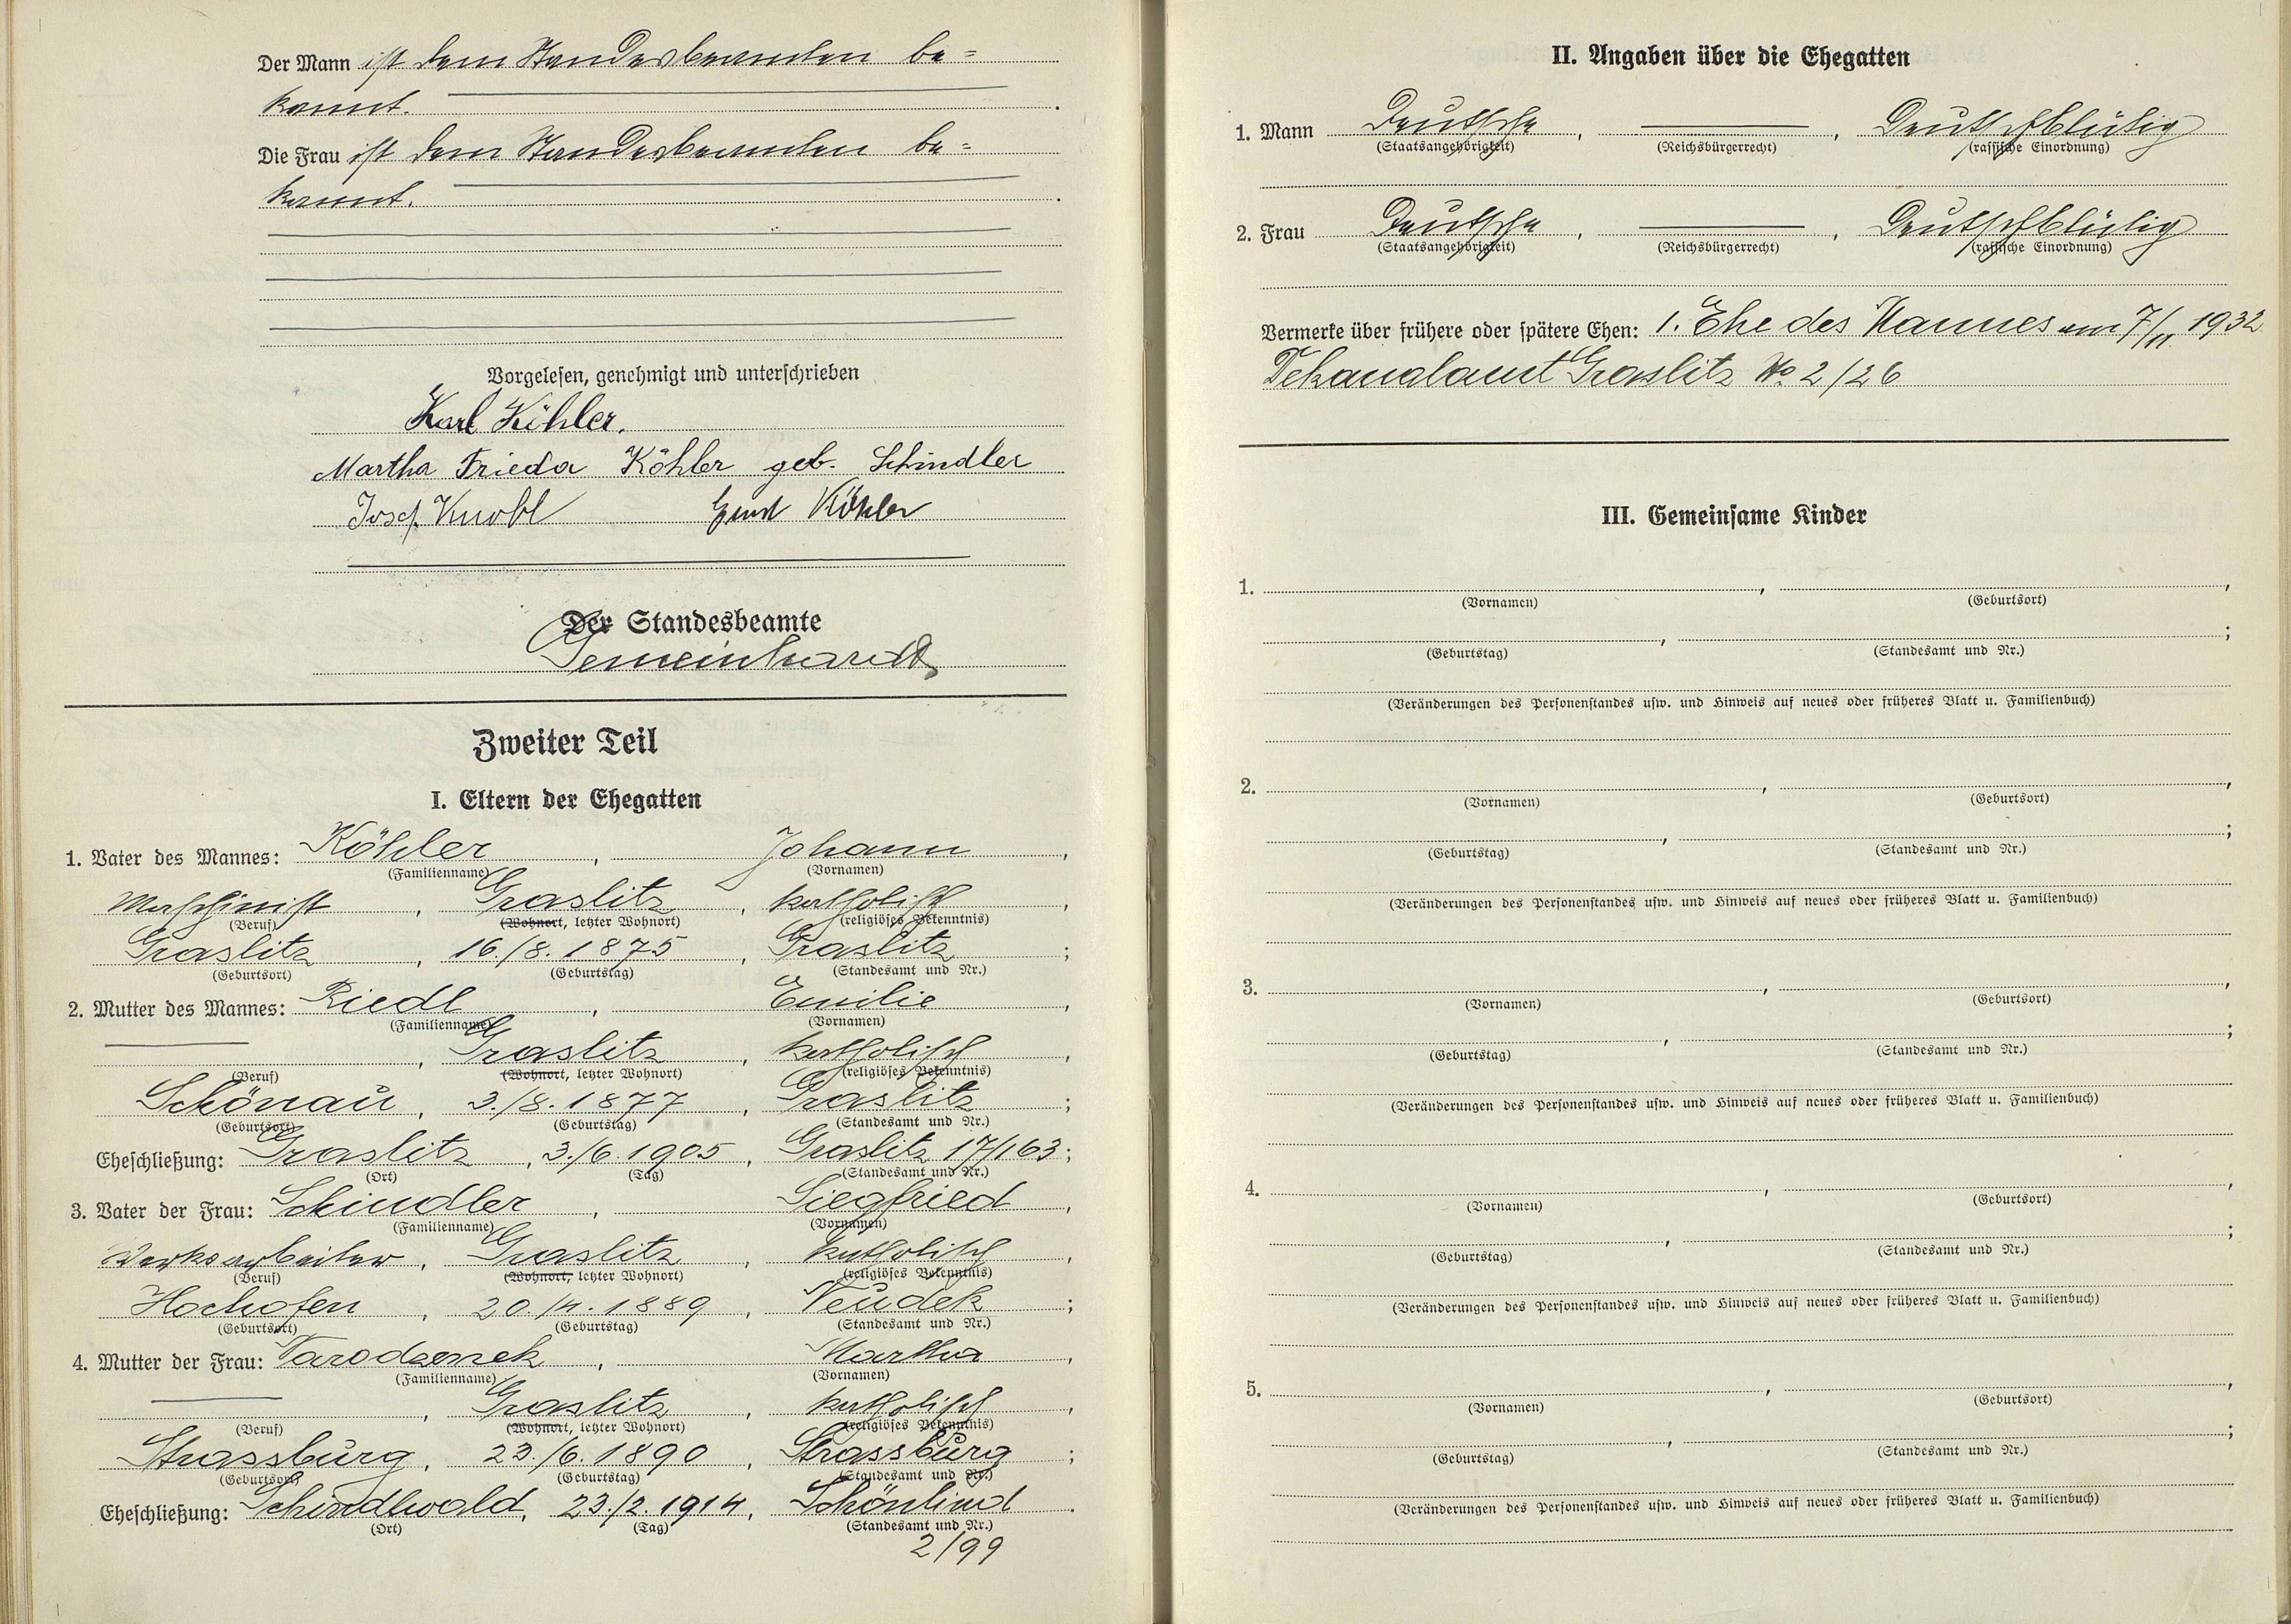 Der Mann ist dem Standesbeamten be=
kannt.
Die Frau ist dem Standesbeamten be=
kannt.
Vorgelesen, genehmigt und unterschrieben
Karl Köhler.
Martha Frieda Köhler geb. Schindler
Josef Knobl Ernst Köhler
Der Standesbeamte
Gemeinhardt
Zweiter Teil
I. Eltern der Ehegatten
1. Vater des Mannes: Köhler, Johann,
(Familienname) (Vornamen)
Maschinist, Graslitz, katholisch,
(Beruf) (Wohnort, letzter Wohnort) (religiöses Bekenntnis)
Graslitz, 16./8. 1875, Graslitz;
(Geburtsort) (Geburtstag) (Standesamt und Nr.)
2. Mutter des Mannes: Riedl, Emilie,
(Familienname) (Vornamen)
, Graslitz, katholisch,
(Beruf) (Wohnort, letzter Wohnort) (religiöses Bekenntnis)
Schönau, 3./8. 1877, Graslitz;
(Geburtsort) (Geburtstag) (Standesamt und Nr.)
Eheschließung: Graslitz, 3./6. 1905, Graslitz 17/163;
(Ort) (Tag) (Standesamt und Nr.)
3. Vater der Frau: Schindler, Siegfried,
(Familienname) (Vornamen)
Werksarbeiter, Graslitz, katholisch,
(Beruf) (Wohnort, letzter Wohnort) (religiöses Bekenntnis)
Hochofen, 20./4. 1889, Neudek;
(Geburtsort) (Geburtstag) (Standesamt und Nr.)
4. Mutter der Frau: , Martha,
(Familienname) (Vornamen)
, Graslitz, katholisch,
(Beruf) (Wohnort, letzter Wohnort) (religiöses Bekenntnis)
Strassburg, 23./6. 1890, Strassburg;
(Geburtsort) (Geburtstag) (Standesamt und Nr.)
Eheschließung: Schindlwald, 23./2. 1914, Schönlind.
(Ort) (Tag) (Standesamt und Nr.)
2/99
II. Angaben über die Ehegatten
1. Mann Deutsche, , Deutschblütig
(Staatsangehörigkeit) (Reichsbürgerrecht) (rassische Einordnung)
2. Frau Deutsche, , Deutschblütig
(Staatsangehörigkeit) (Reichsbürgerrecht) (rassische Einordnung)
Vermerke über frühere oder spätere Ehen: 1. Ehe des Mannes am 7/11 1932
Dekanalamt Graslitz No 2/26
III. Gemeinsame Kinder
1. , ,
(Vornamen) (Geburtsort)
, ;
(Geburtstag) (Standesamt und Nr.)
(Veränderungen des Personenstandes usw. und Hinweis auf neues oder früheres Blatt u. Familienbuch)
2. , ,
(Vornamen) (Geburtsort)
, ;
(Geburtstag) (Standesamt und Nr.)
(Veränderungen des Personenstandes usw. und Hinweis auf neues oder früheres Blatt u. Familienbuch)
3. , ,
(Vornamen) (Geburtsort)
, ;
(Geburtstag) (Standesamt und Nr.)
(Veränderungen des Personenstandes usw. und Hinweis auf neues oder früheres Blatt u. Familienbuch)
4. , ,
(Vornamen) (Geburtsort)
, ;
(Geburtstag) (Standesamt und Nr.)
(Veränderungen des Personenstandes usw. und Hinweis auf neues oder früheres Blatt u. Familienbuch)
5. , ,
(Vornamen) (Geburtsort)
, ;
(Geburtstag) (Standesamt und Nr.)
(Veränderungen des Personenstandes usw. und Hinweis auf neues oder früheres Blatt u. Familienbuch)